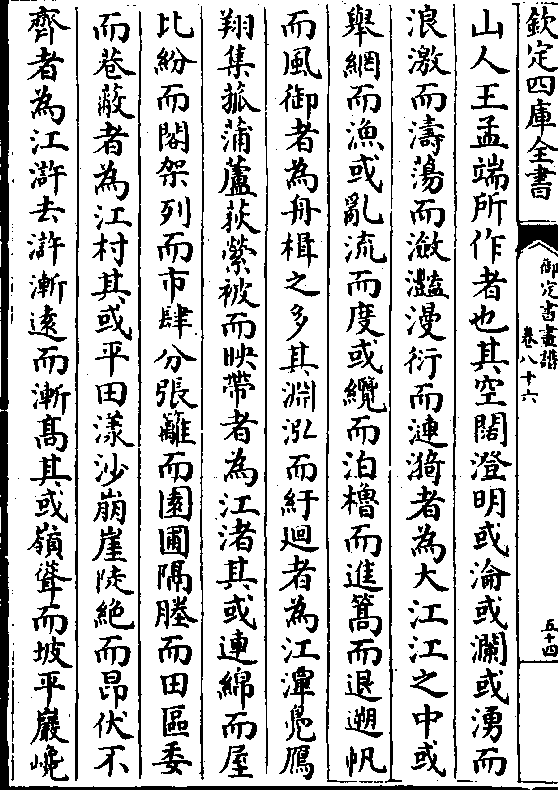 欽定四庫全書
御定書畫譜
卷八十六
五十四
山人王孟端所作者也其空闊澄明或淪或瀾或湧而
浪激而濤蕩而瀲灔漫衍而漣漪者為大江江之中或
舉網而漁或亂流而度或纜而泊櫓而進篙而退遡帆
而風御者為舟楫之多其淵泓而紆廻者為江潭鳧鴈
翔集菰蒲蘆荻縈被而映帶者為江渚其或連綿而屋
比紛而閣架列而市肆分張籬而園圃隔塍而田區委
而巷蔽者為江村其或平田漾沙崩崖陡絶而昂伏不
齊者為江滸去滸漸逺而漸髙其或嶺聳而坡平巖巉